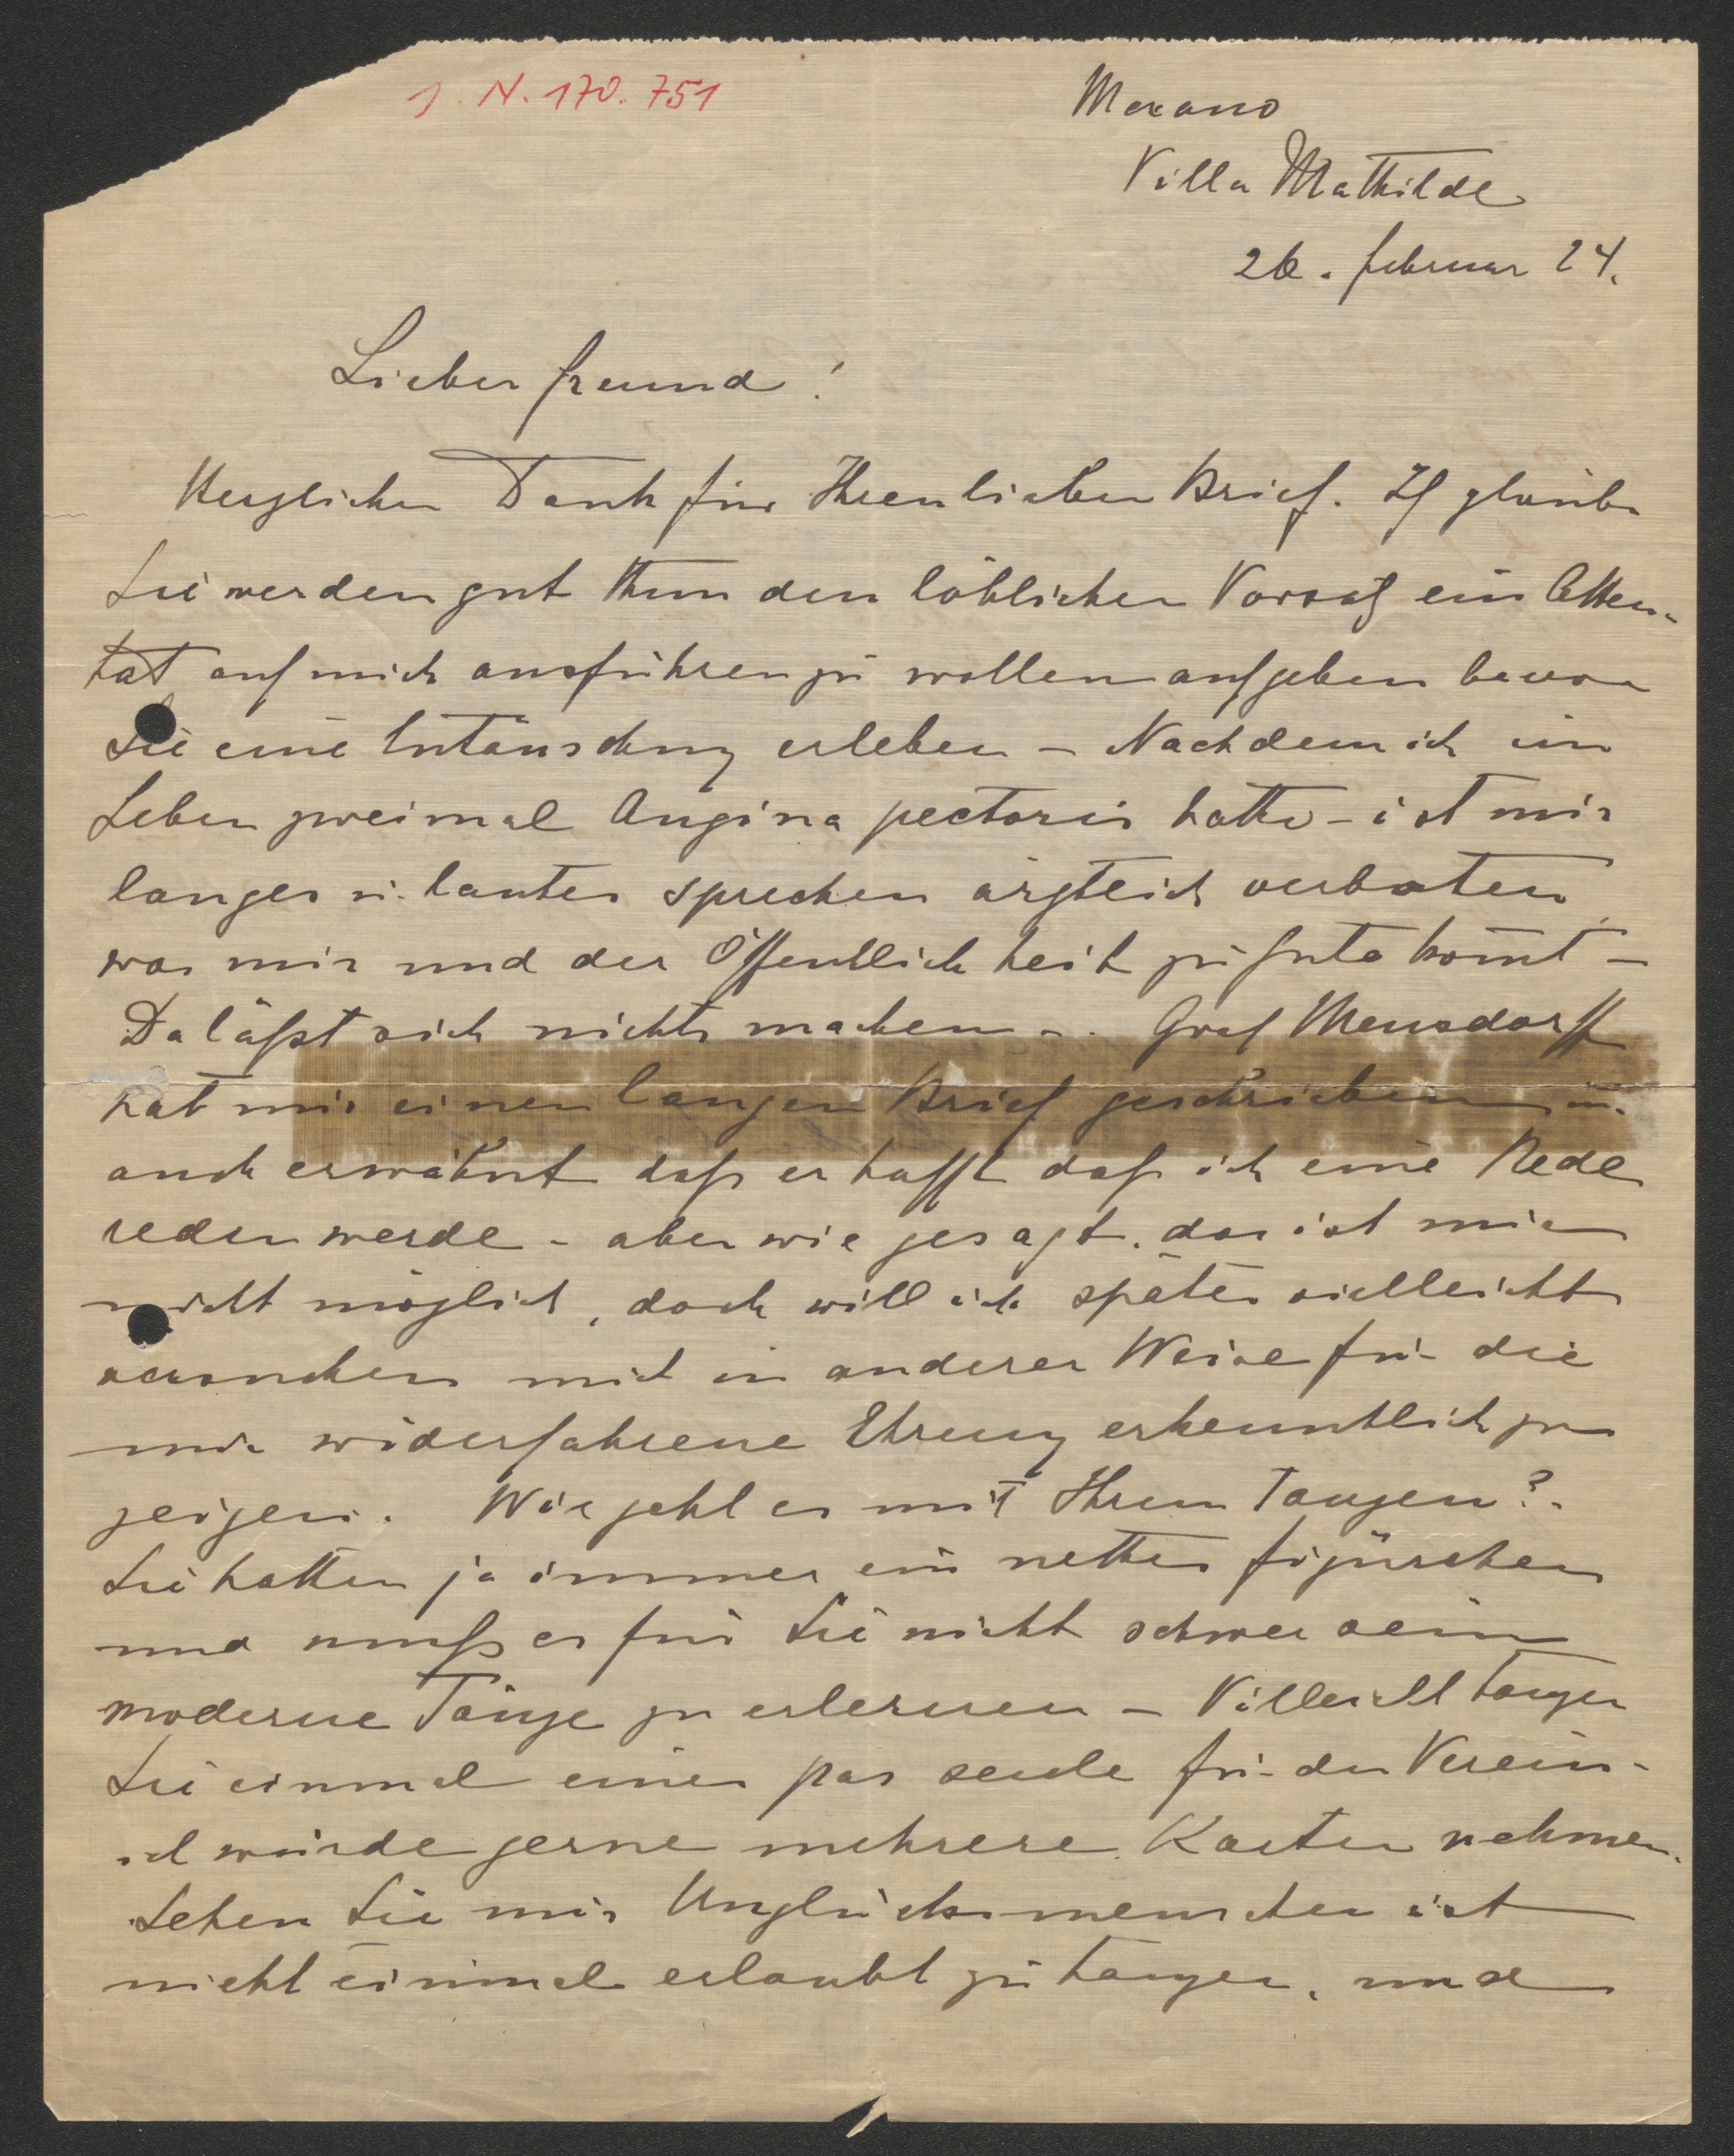 J. N. 170.751
Merano
Villa Mathilde
26. Februar 24.
Lieber Freund!
Herzlichen Dank für Ihren lieben Brief. Ich glaube
Sie werden gut thun den löblichen Vorsatz ein Atten-
tat auf mich ausführen zu wollen aufgeben bevor
Sie eine Entäuschung erleben – Nachdem ich im
Leben zweimal Angina pectoris hatte – ist mir
langes u. lautes sprechen ärztlich verboten,
was mir und der Öffentlichkeit zu gute kom̅t –
Da läßt sich nichts machen –. Graf Mensdorff
hat mir einen langen Brief geschrieben u.
auch erwähnt daß er hofft daß ich eine Rede
reden werde – aber wie gesagt, das ist mir
nicht möglich, doch will ich später vielleicht
versuchen mich in anderer Weise für die
mir widerfahrene Ehrung erkenntlich zu
zeigen. Wie geht es mit Ihrem Tanzen?.
Sie hatten ja immer ein nettes Figürchen
und muß es für Sie nicht schwer sein
moderne Tänze zu erlernen – Villeicht tanzen
Sie einmal einen pas seule für den Verein –
ich würde gerne mehrere Karten nehmen.
Sehen Sie mir Unglücksmenschen ist
nicht einmal erlaubt zu tanzen, und